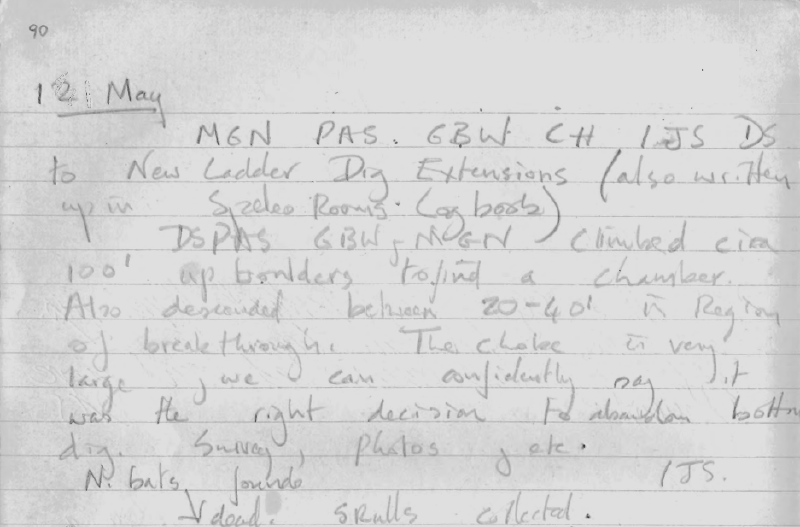 90
12 May
MGN PAS. GBW CH IJS DS
to New Ladder Dig Extensions (also written
up in Speleo Rooms. Log book)
DS PAS GBW, MGN climbed circa
100' up boulders to find a chamber.
Also descended between 20-40' in Region
of breakthrough. The choke is very
large, we can confidently say it
was the right decision to abandon bottom
dig. Survey, photos, etc.
N. bats found
IJS.
dead. Skulls collected.